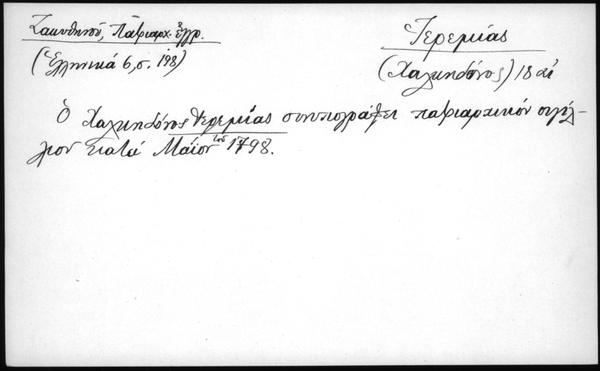 Ζακυθηνοῦ, Πατριαρχ. ἔγγρ.
(Ἑλληνικά 6, σ. 198)
Ἱερεμίας
(Χαλκηδόνος) 18 αἰ
Ὁ Χαλκηδόνος Ἱερεμίας συνυπογράφει πατριαρχικόν σιγίλ-
λιον κατά Μάϊον τοῦ 1798.